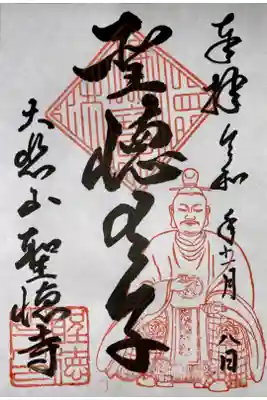 奉拝 令和 年十一月 八日
聖徳太子
大悲山 聖徳寺
聖徳